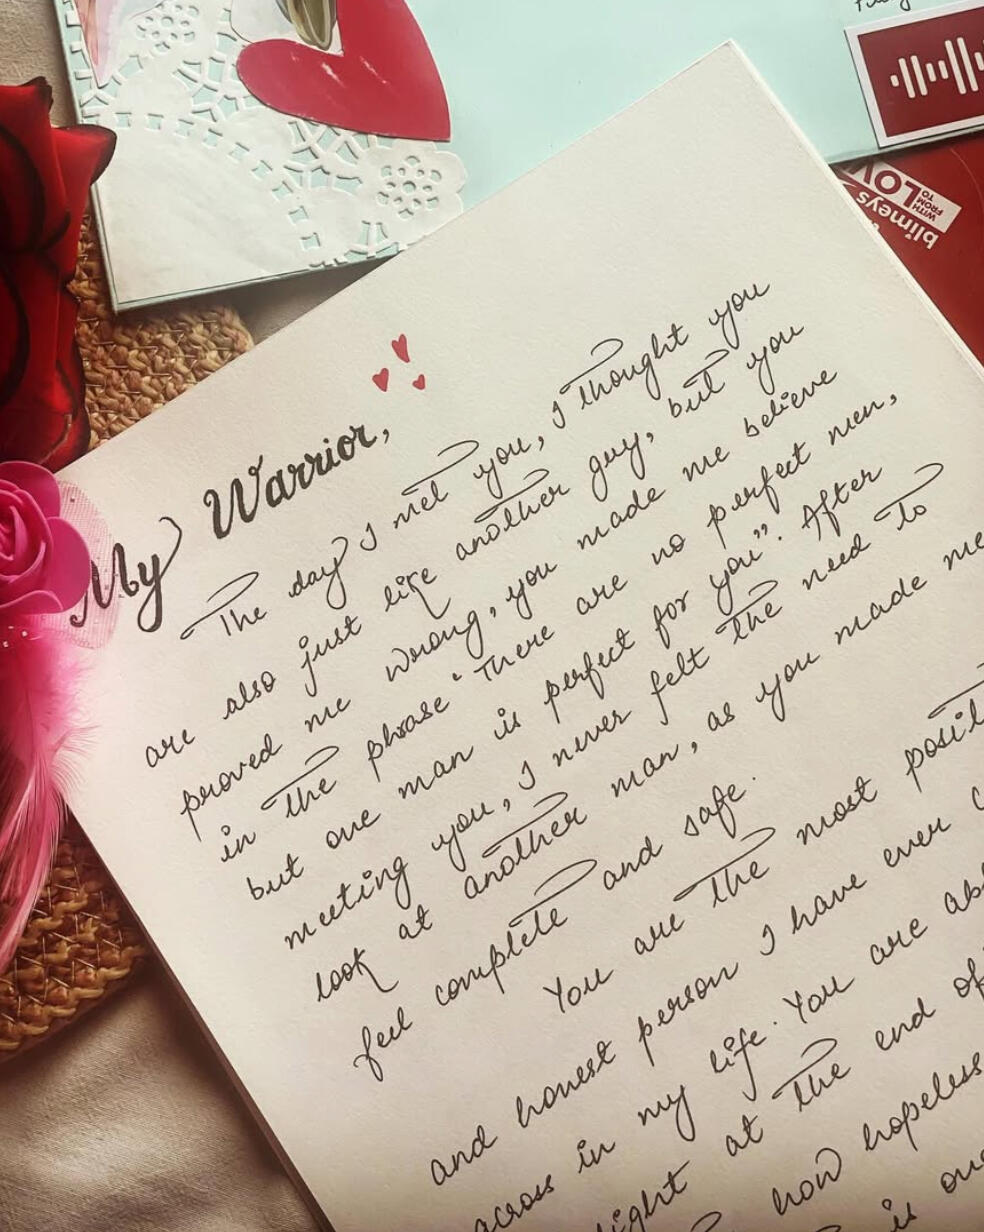 LOV
FROM
TO
WITH
blimeys
My Warrior,
The day I met you, I thought you
are also just like another guy, but you
proved me wrong, you made me believe
in the phrase "There are no perfect men,
but one man is perfect for you". After
meeting you, I never felt the need to
look at another man, as you made me
feel complete and safe.
You are the most posit
and honest person I have ever c
across in my life. You are ab
light at the end of
how hopeless
is one